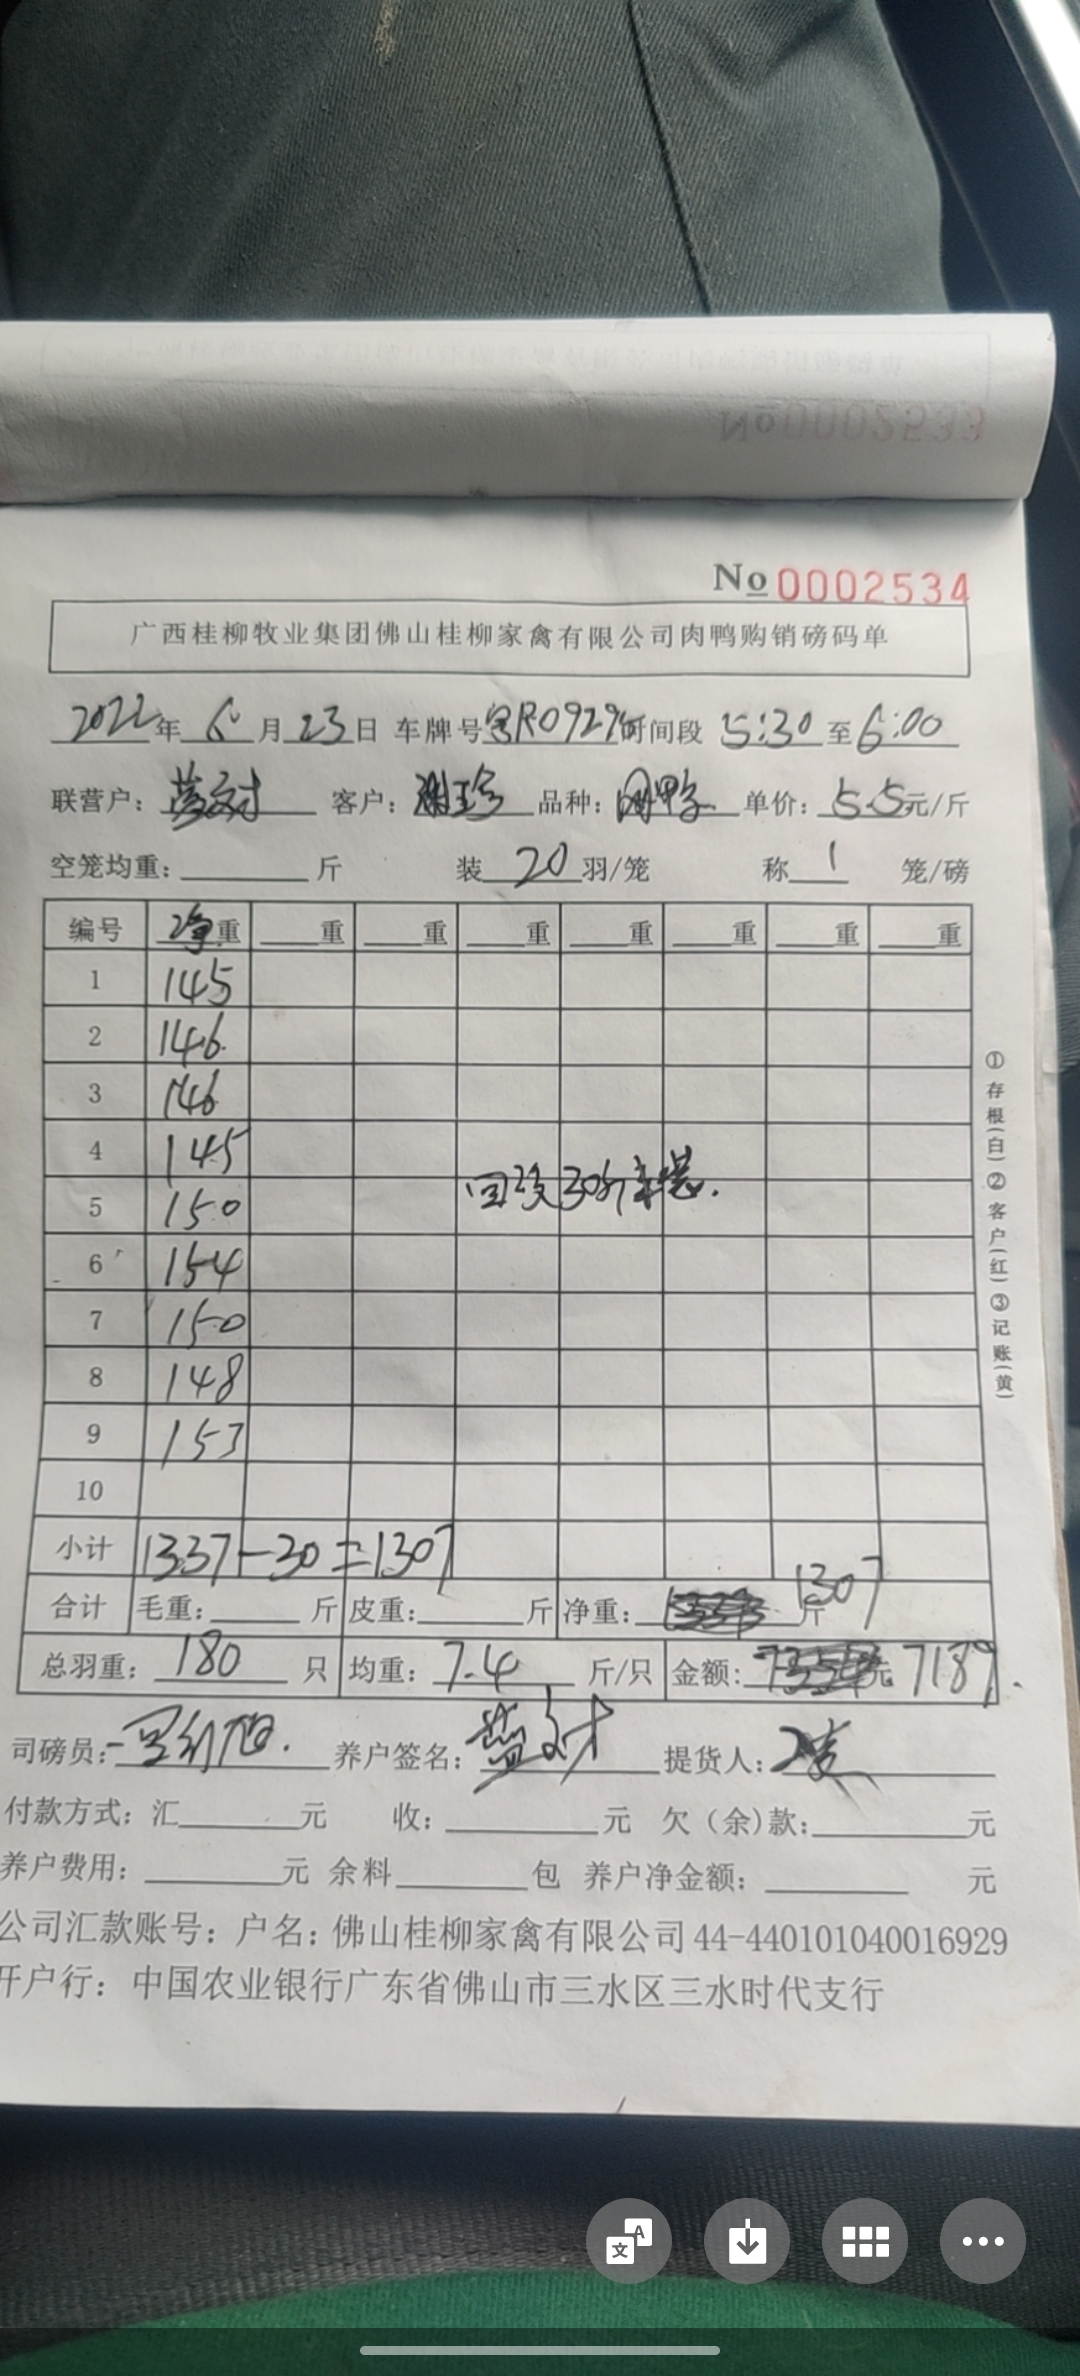 No 0002533
No 0002534
广西桂柳牧业集团佛山桂柳家禽有限公司肉鸭购销磅码单
2022年 6月23日 车牌号 R0929 时间段 5:30至6:00
联营户： 客户： 品种： 单价：5.5元/斤
空笼均重： 斤 装20羽/笼 称1笼/磅
编号 净重 重 重 重 重 重 重 重
1 145
2 146
3 146
4 145
回 30斤
5 150
6 154
7 150
8 148
9 153
10
小计 1337-30=1307
合计 毛重： 斤 皮重： 斤 净重： 斤 1307
总羽重：180只 均重：7.4斤/只 金额： 元 7189.
司磅员： 养户签名： 提货人：
付款方式：汇 元 收： 元 欠（余）款： 元
养户费用： 元 余料 包 养户净金额： 元
公司汇款账号：户名：佛山桂柳家禽有限公司44-440101040016929
开户行：中国农业银行广东省佛山市三水区三水时代支行
①存根(白)②客户(红)③记账(黄)